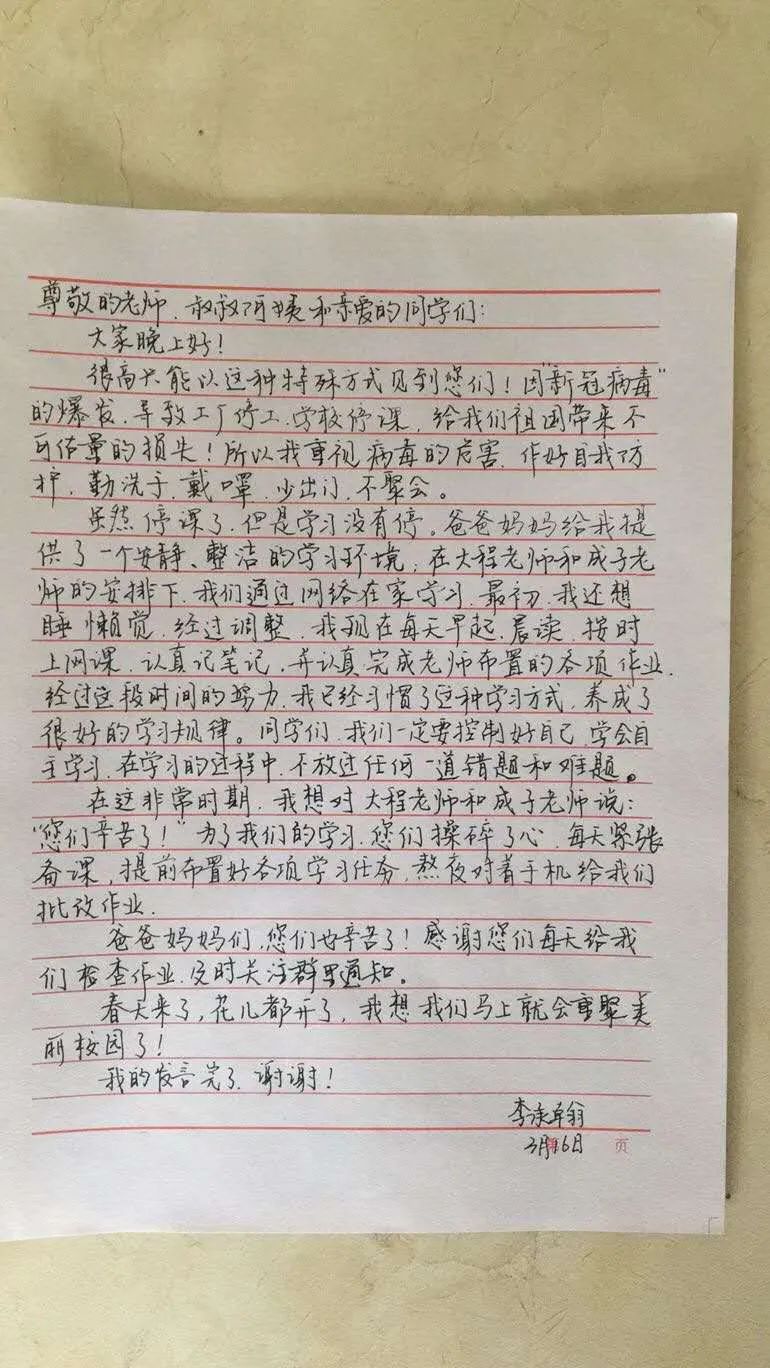 尊敬的老师、叔叔阿姨和亲爱的同学们：
大家晚上好！
很高兴能以这种特殊方式见到您们！因"新冠病毒"
的爆发，导致工厂停工，学校停课，给我们祖国带来不
可估量的损失！所以我重视病毒的危害，作好自我防
护，勤洗手，戴口罩，少出门，不聚会。
虽然停课了，但是学习没有停。爸爸妈妈给我提
供了一个安静、整洁的学习环境，在大程老师和成子老
师的安排下，我们通过网络在家学习，最初，我还想
睡懒觉，经过调整，我现在每天早起，晨读，按时
上网课，认真记笔记，并认真完成老师布置的各项作业，
经过这段时间的努力，我已经习惯了这种学习方式，养成了
很好的学习规律。同学们，我们一定要控制好自己，学会自
主学习，在学习的过程中，不放过任何一道错题和难题。
在这非常时期，我想对大程老师和成子老师说：
"您们辛苦了！"为了我们的学习，您们操碎了心，每天紧张
备课，提前布置好各项学习任务，熬夜对着手机给我们
批改作业．
爸爸妈妈们，您们也辛苦了！感谢您们每天给我
们检查作业，及时关注群里通知。
春天来了，花儿都开了，我想我们马上就会重聚美
丽校园了！
我的发言完了，谢谢！
李 翰
3月16日 页